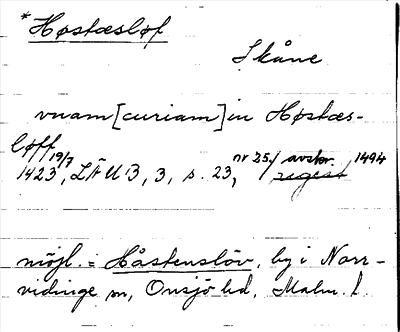 *Høstæsløf
Skåne
vnam [curiam] in Høstæs-
løff
19/7 1423, LÄUB, 3, s. 23, nr 25/ avskr. 1494
regest
möjl. = Håstenslöv, by i Norr-
vidinge sn, Onsjö hd, Malm. l.